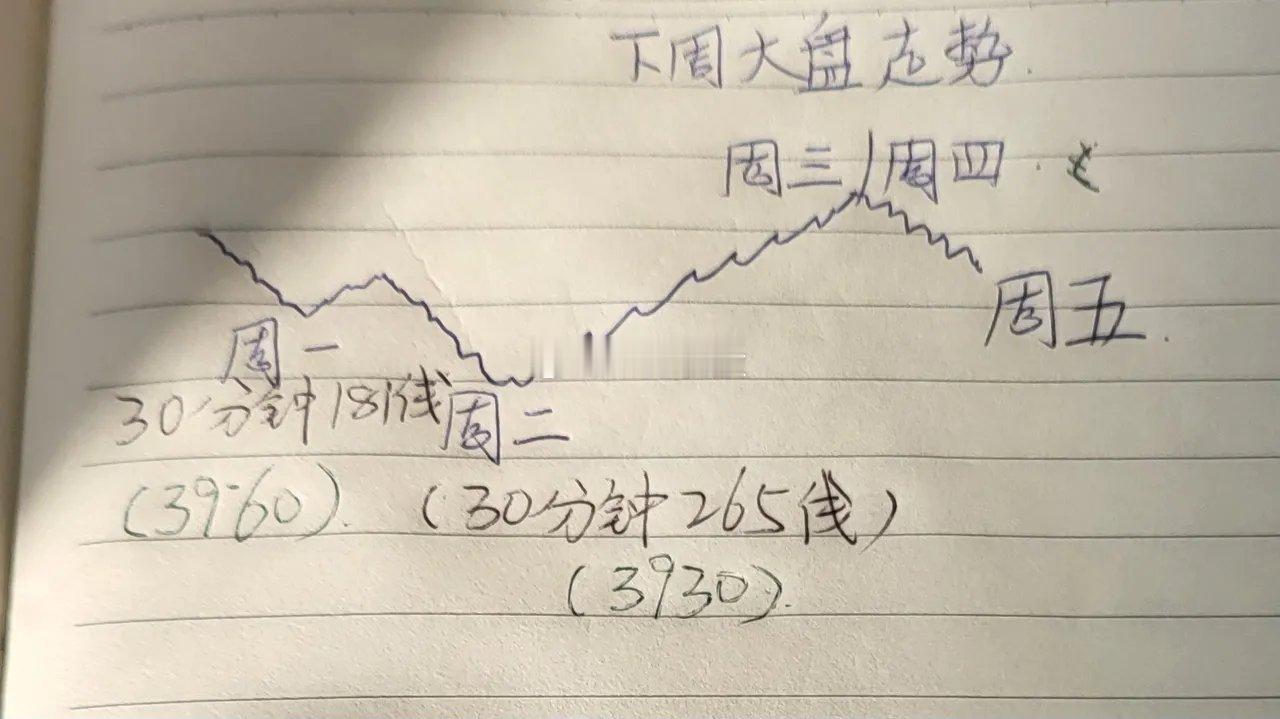 下周大盘走势.
周三/周四.
周五.
周一
30分钟181线
周二
(3960).
(30分钟265线)
(3930).